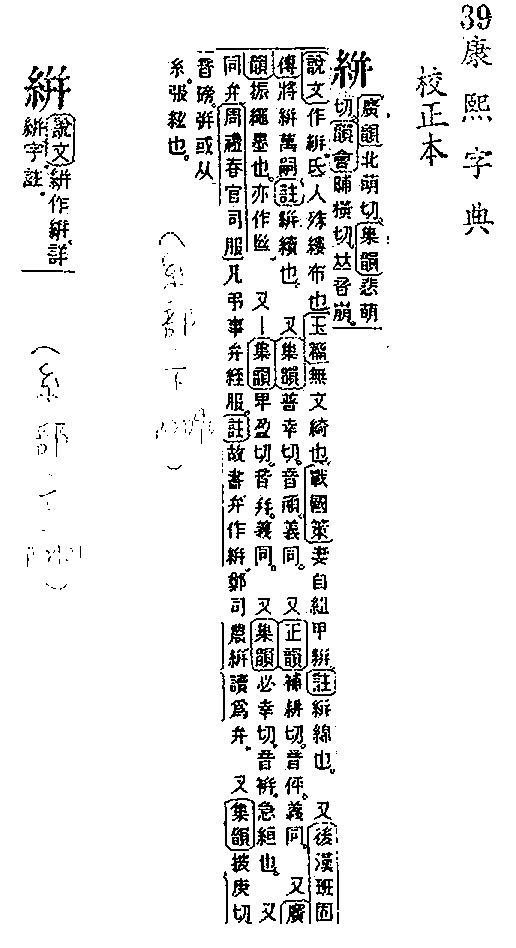 39
康熙字典
校正本
絣
廣韻北萌切集韻悲萌
切韻會晡橫切𠀤音崩
說文作絣氐人殊縷布也玉篇無文綺也戰國策妻自組甲絣註絣綿也。 又後漢班固
傳將絣萬嗣註絣續也。 又集韻普幸切音𩒖義同。 又正韻補耕切音伻義同。 又廣
韻振繩墨也亦作 又 集韻卑盈切音幷義同。 又集韻必幸切音絣急絙也。 又
同弁周禮春官司服凡弔事弁絰服註故書弁作絣鄭司農絣讀爲弁。 又集韻披庚切
音磅。絣或从
糸張絃也。
絣
說文絣作絣詳
絣字註。
（糸部·下
（糸部·下